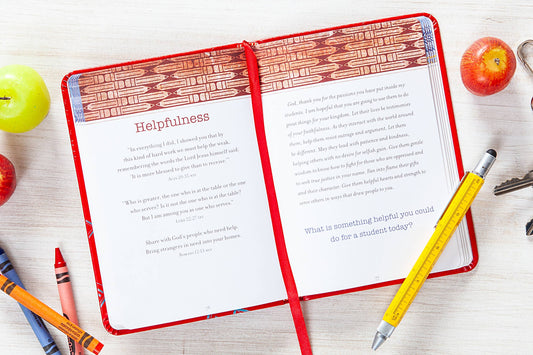 Helpfulness
"In everything I did, I showed you that by
this kind of hard work we must help the weak,
remembering the words the Lord Jesus himself said:
'It is more blessed to give than to receive.'"
Acts 20:35 NIV
"Who is greater, the one who is at the table or the
one who serves? Is it not the one who is at the table?
But I am among you as one who serves."
Luke 22:27 NIV
Share with God's people who need help.
Bring strangers in need into your homes.
Romans 12:13
God, thank you for the passions you have put inside my
students. I am hopeful that you are going to use them to do
great things for your kingdom. Let their lives be testimonies
of your faithfulness. As they interact with the world around
them, help them meet outrage and argument. Let them
be different. May they lead with patience and kindness,
helping others with no desire for selfish gain. Give them gentle
wisdom to know how to fight for those who are oppressed and
to seek true justice in your name. Put into flame their gifts
and their character. Give them helpful hearts and strength to
serve others in ways that draw people to you.
What is something helpful you could
do for a student today?